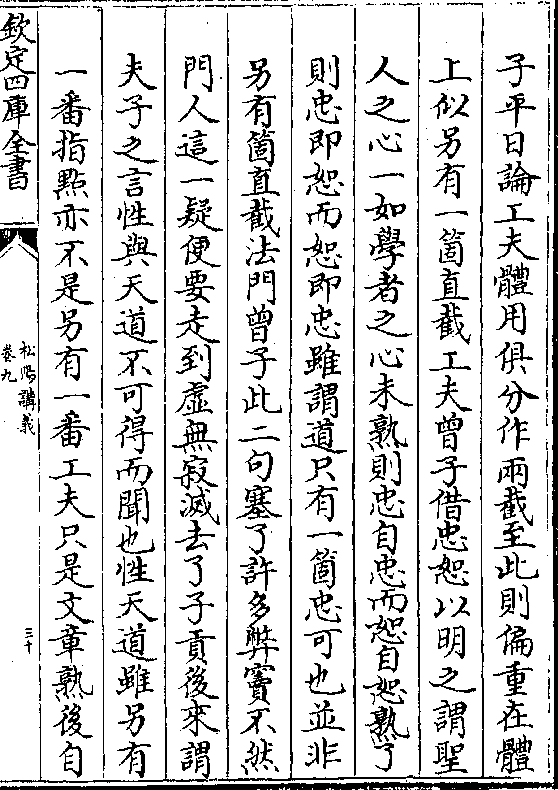 子平日論工夫體用俱分作兩截至此則偏重在體
上似另有一箇直截工夫曾子借忠恕以明之謂聖
人之心一如學者之心未熟則忠自忠而恕自恕熟了
則忠即恕而恕即忠雖謂道只有一箇忠可也並非
另有箇直截法門曾子此二句塞了許多弊竇不然
門人這一疑便要走到虛無寂滅去了子貢後來謂
夫子之言性與天道不可得而聞也性天道雖另有
一番指點亦不是另有一番工夫只是文章熟後自
欽定四庫全書
松陽講義
卷九
三十